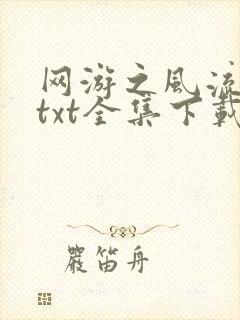 网游之风流
txt全集下载
严笛舟